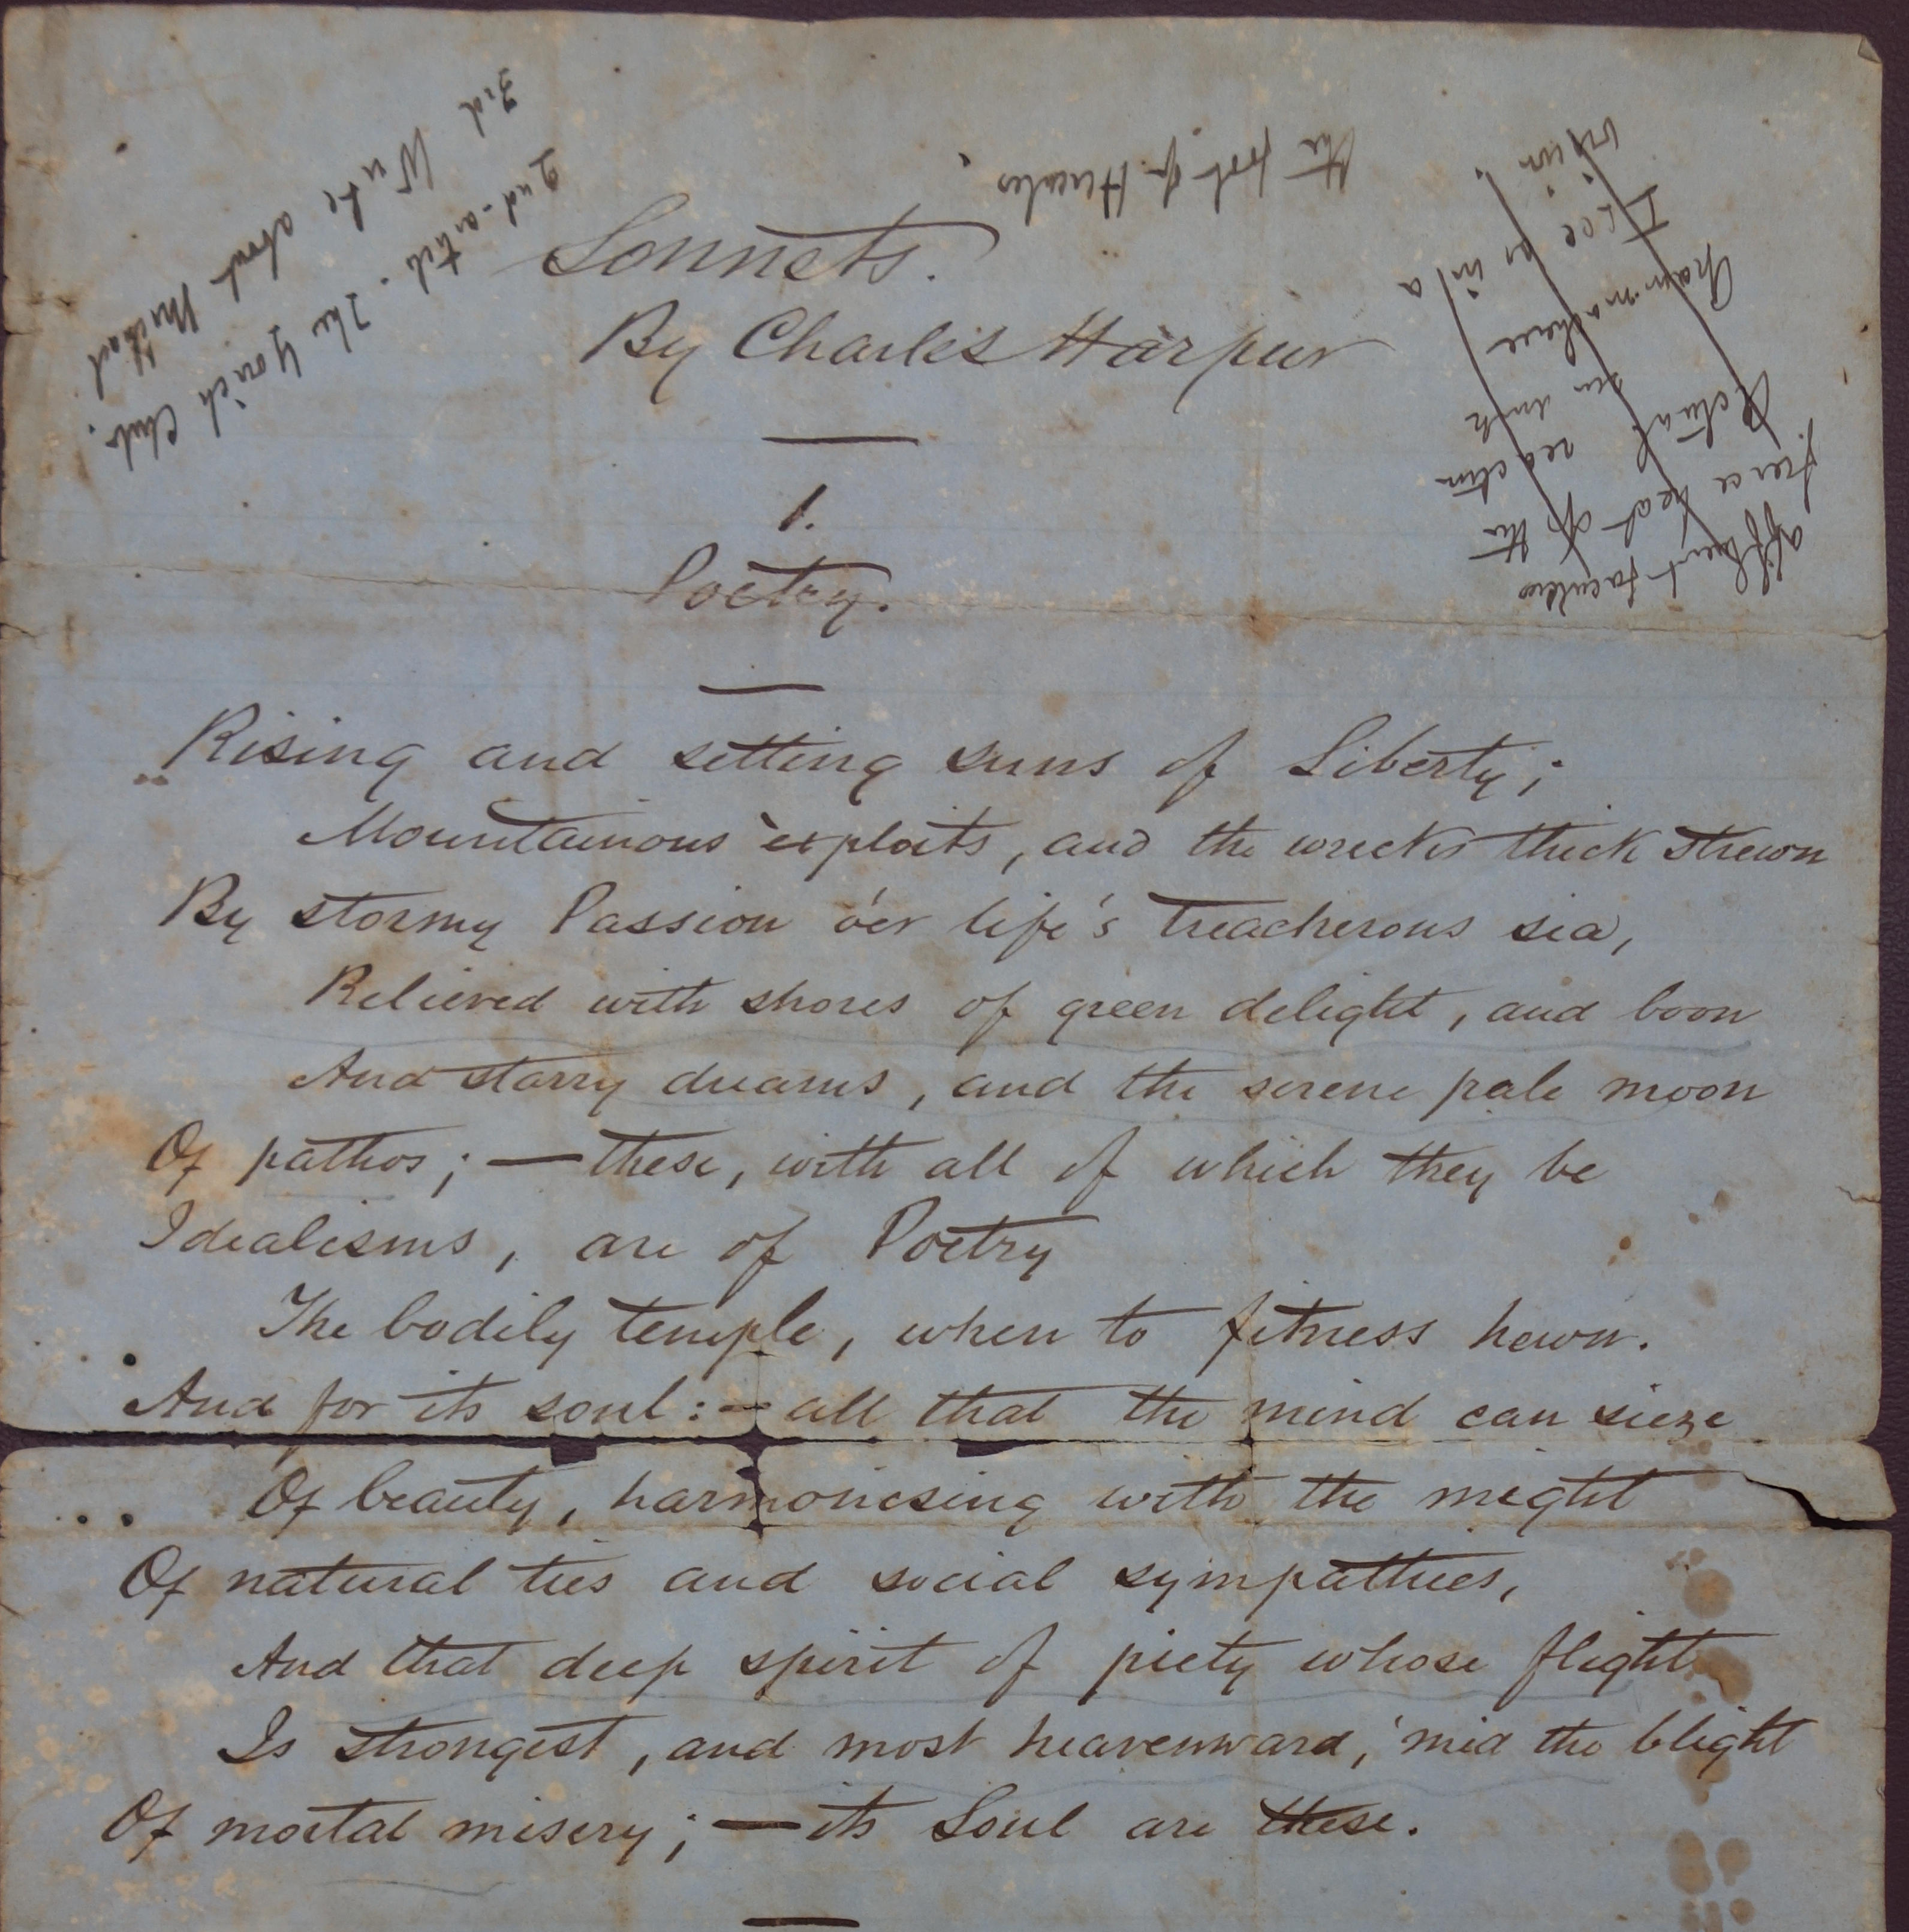 3rd Write about Michael
2nd-article. The Yorick Club.
the foot of Hercules.
vision!
I see as in a
reaction
fierce heat of the
affluent faculties
Sonnets.
By Charles Harpur
1.
Poetry.
Rising and setting suns of Liberty;
Mountainous exploits, and the wrecks thick strewn
By stormy Passion o'er life's treacherous sea,
Relieved with shores of green delight, and boon
And starry dreams, and the serene pale moon
Of pathos; — these, with all of which they be
Idealisms, are of Poetry
The bodily temple, when to fitness hewn.
And for its soul:— all that the mind can sieze
Of beauty, harmonising with the might
Of natural ties and social sympathies,
And that deep spirit of piety whose flight
Is strongest, and most heavenward, 'mid the blight
Of mortal misery; — its Soul are these.